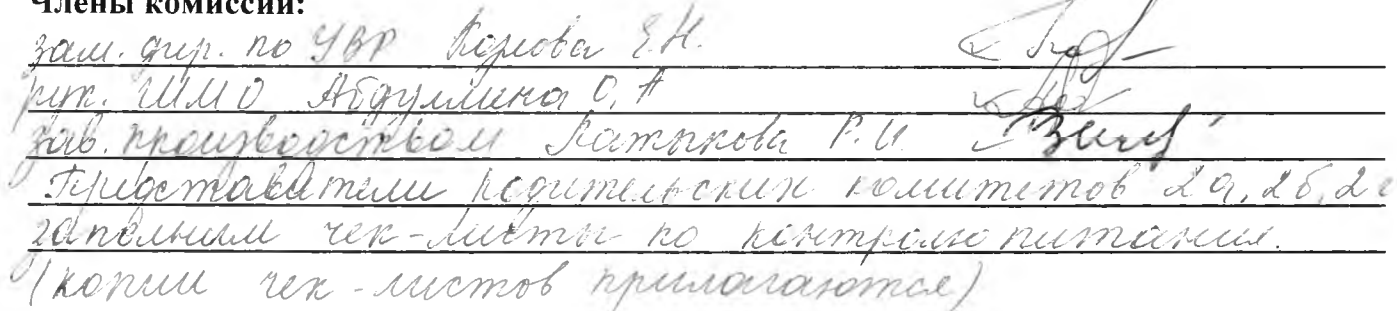 Члены комиссии:
зам. дир. по УВР Карпова Е.Н.
рук. ШМО Абдуллина О.А
зав. производством Латыпова Р.И.
Представители родительских комитетов 2а, 2б, 2г
заполнили чек-листы по контролю питания.
(копии чек-листов прилагаются)